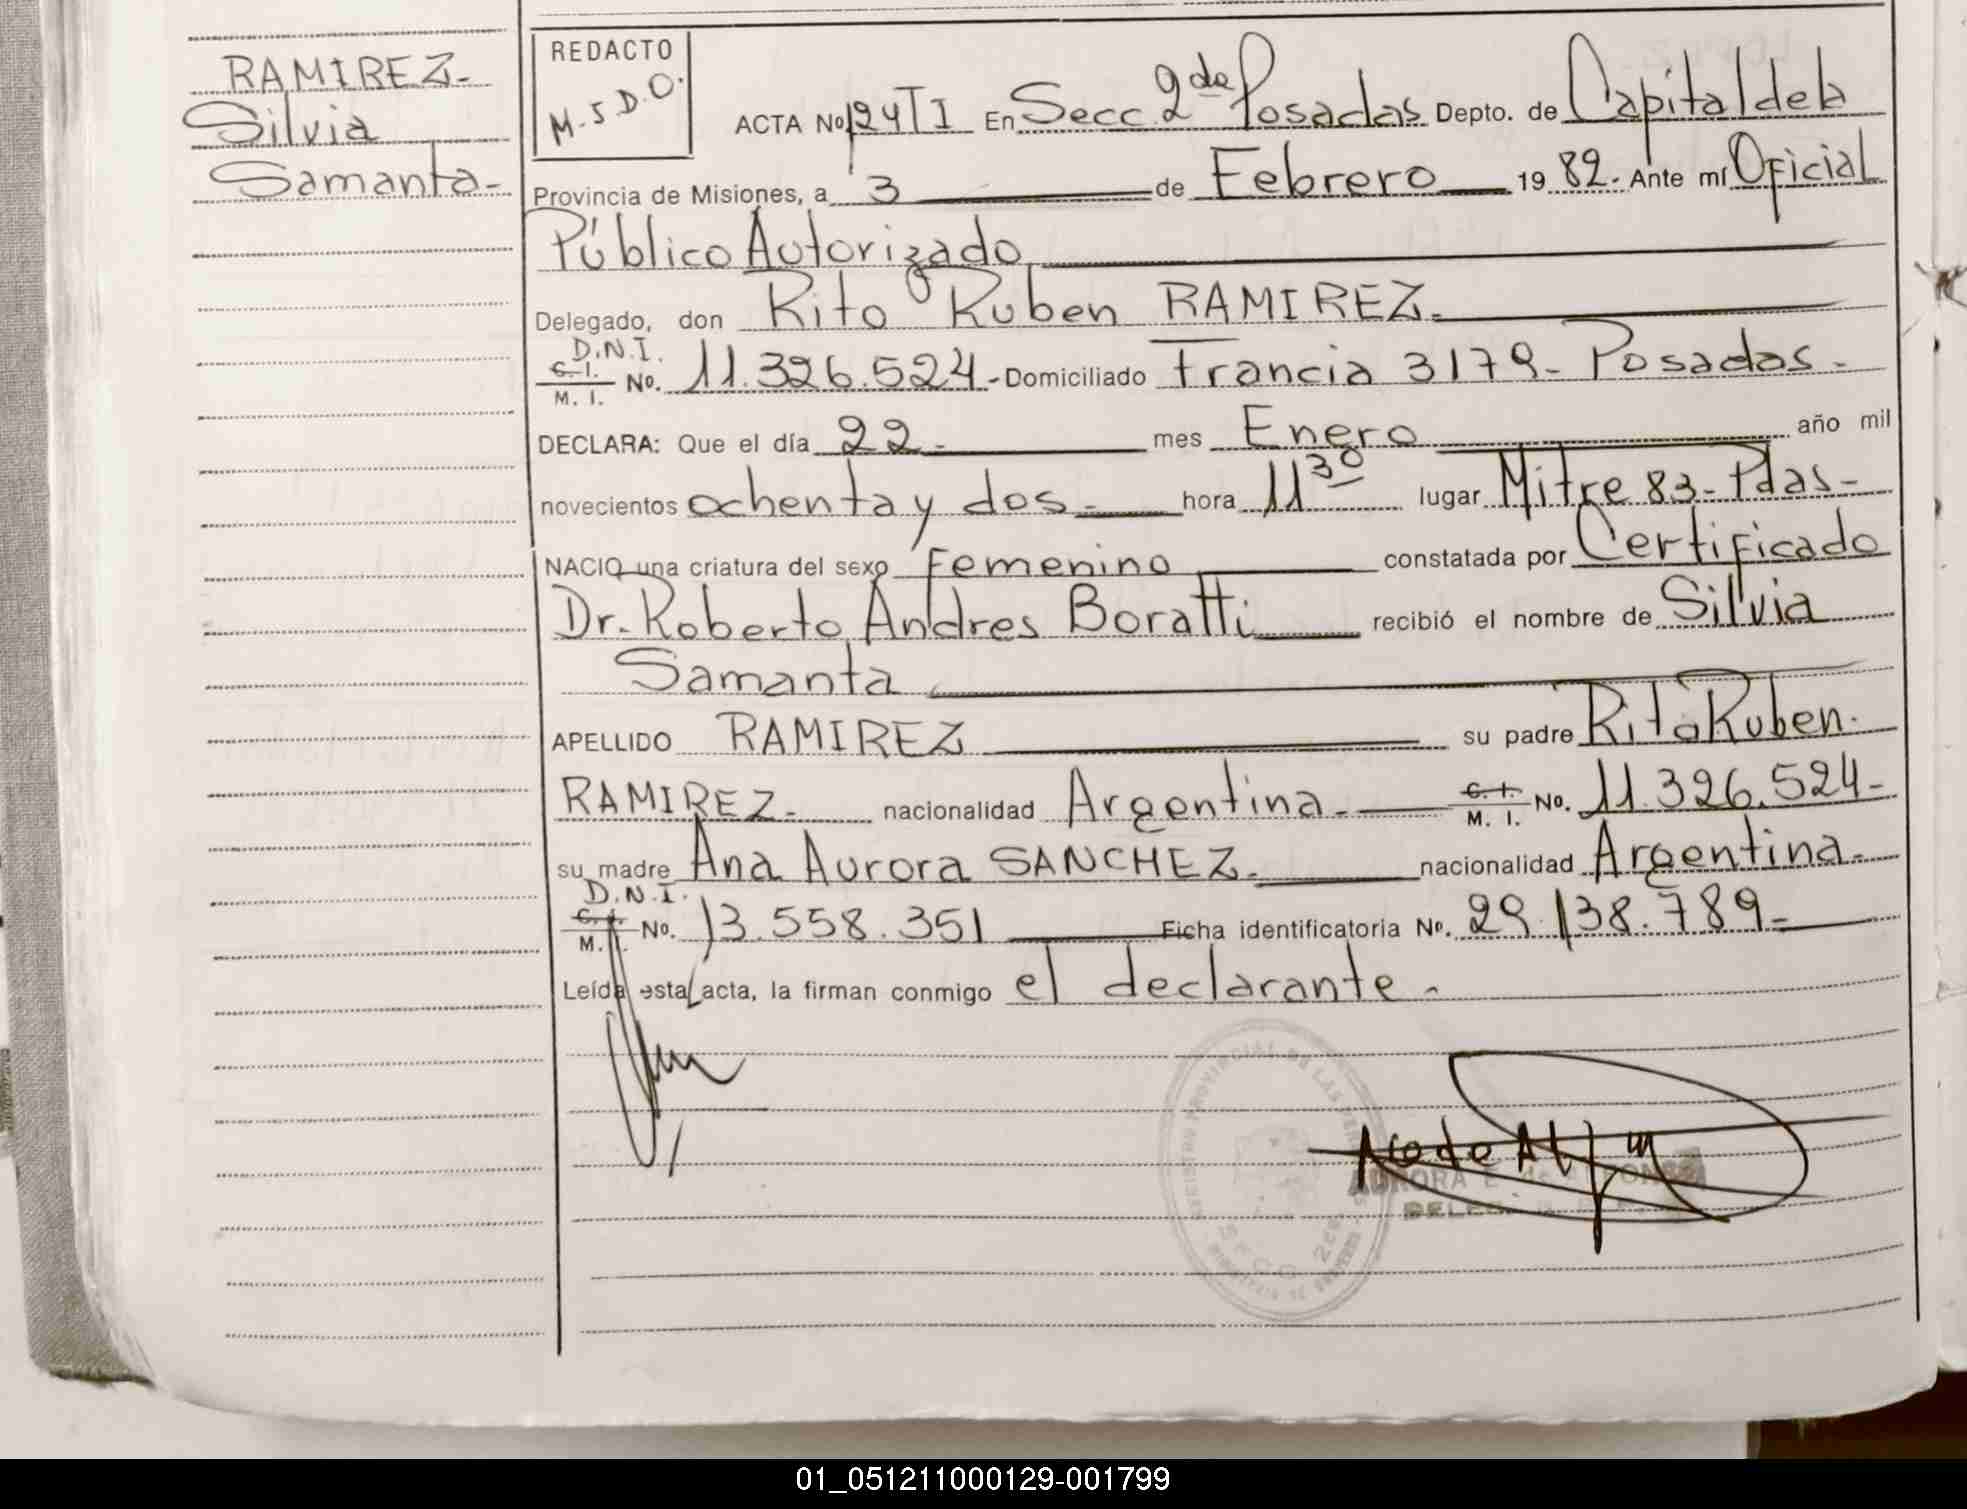 RAMIREZ-
Silvia
Samanta-
REDACTO
M.S.D.O.
ACTA No 124 T I En Secc 2da Posadas Depto. de Capital de la
Provincia de Misiones, a 3 de Febrero 1982. Ante mí Oficial
Público Autorizado
Delegado, don Rito Ruben RAMIREZ.
D.N.I.
C. I.
M. I. No. 11.326.524.- Domiciliado Francia 3179- Posadas-
DECLARA: Que el día 22- mes Enero año mil
novecientos ochenta y dos- hora 11 30 lugar Mitre 83- Pdas-
NACIO una criatura del sexo Femenino constatada por Certificado
Dr. Roberto Andres Boratti recibió el nombre de Silvia
Samanta
APELLIDO RAMIREZ su padre Rito Ruben.
RAMIREZ- nacionalidad Argentina- C. I.
M. I. No. 11.326.524-
su madre Ana Aurora SANCHEZ. nacionalidad Argentina-
D.N.I.
C. I.
M. I. No. 13.558.351 Ficha identificatoria No. 29.138.789-
Leída esta acta, la firman conmigo el declarante-
AURORA E. de
SECC. 2da
01_051211000129-001799